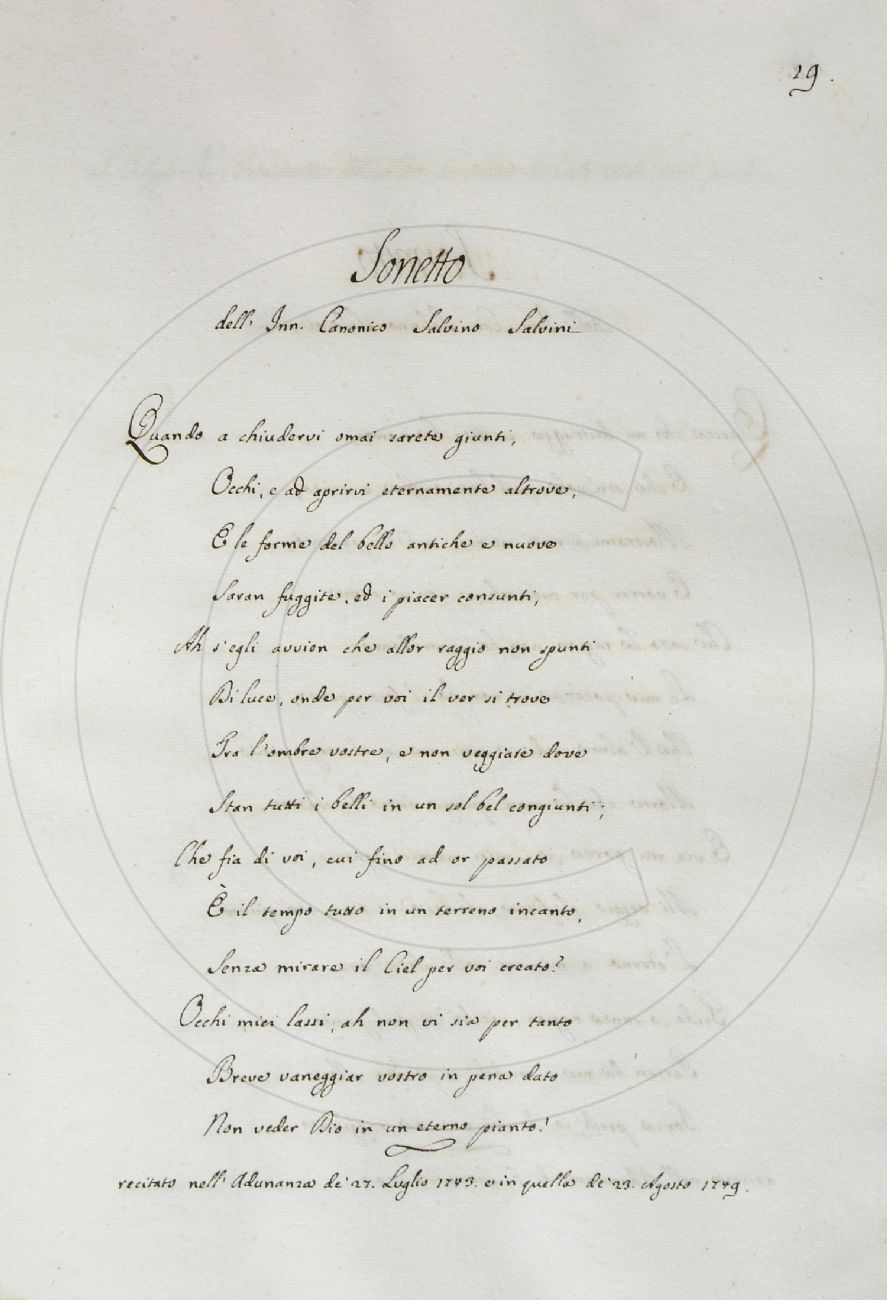 29.
Sonetto.
dell' Inn. Canonico Salvino Salvini
Quando a chiudervi omai sarete giunti,
Occhi, e ad aprirvi eternamente altrove,
E le forme del bello antiche e nuove
Saran fuggite, ed i piacer consunti,
Ah s'egli avvien che allor raggio non spunti
Di luce, onde per voi il ver si trove
Fra l'ombre vostre, e non veggiate dove
Stan tutti i belli in un sol bel congiunti;
Che fia di voi, cui fino ad or passato
È il tempo tutto in un terreno incanto,
Senza mirare il Ciel per voi creato?
Occhi miei lassi, ah non vi sia per tanto
Breve vaneggiar vostro in pena dato
Non veder Dio in un eterno pianto!
recitato nell' Adunanza de' 27. Luglio 1743. e in quella de' 23. Agosto 1749.